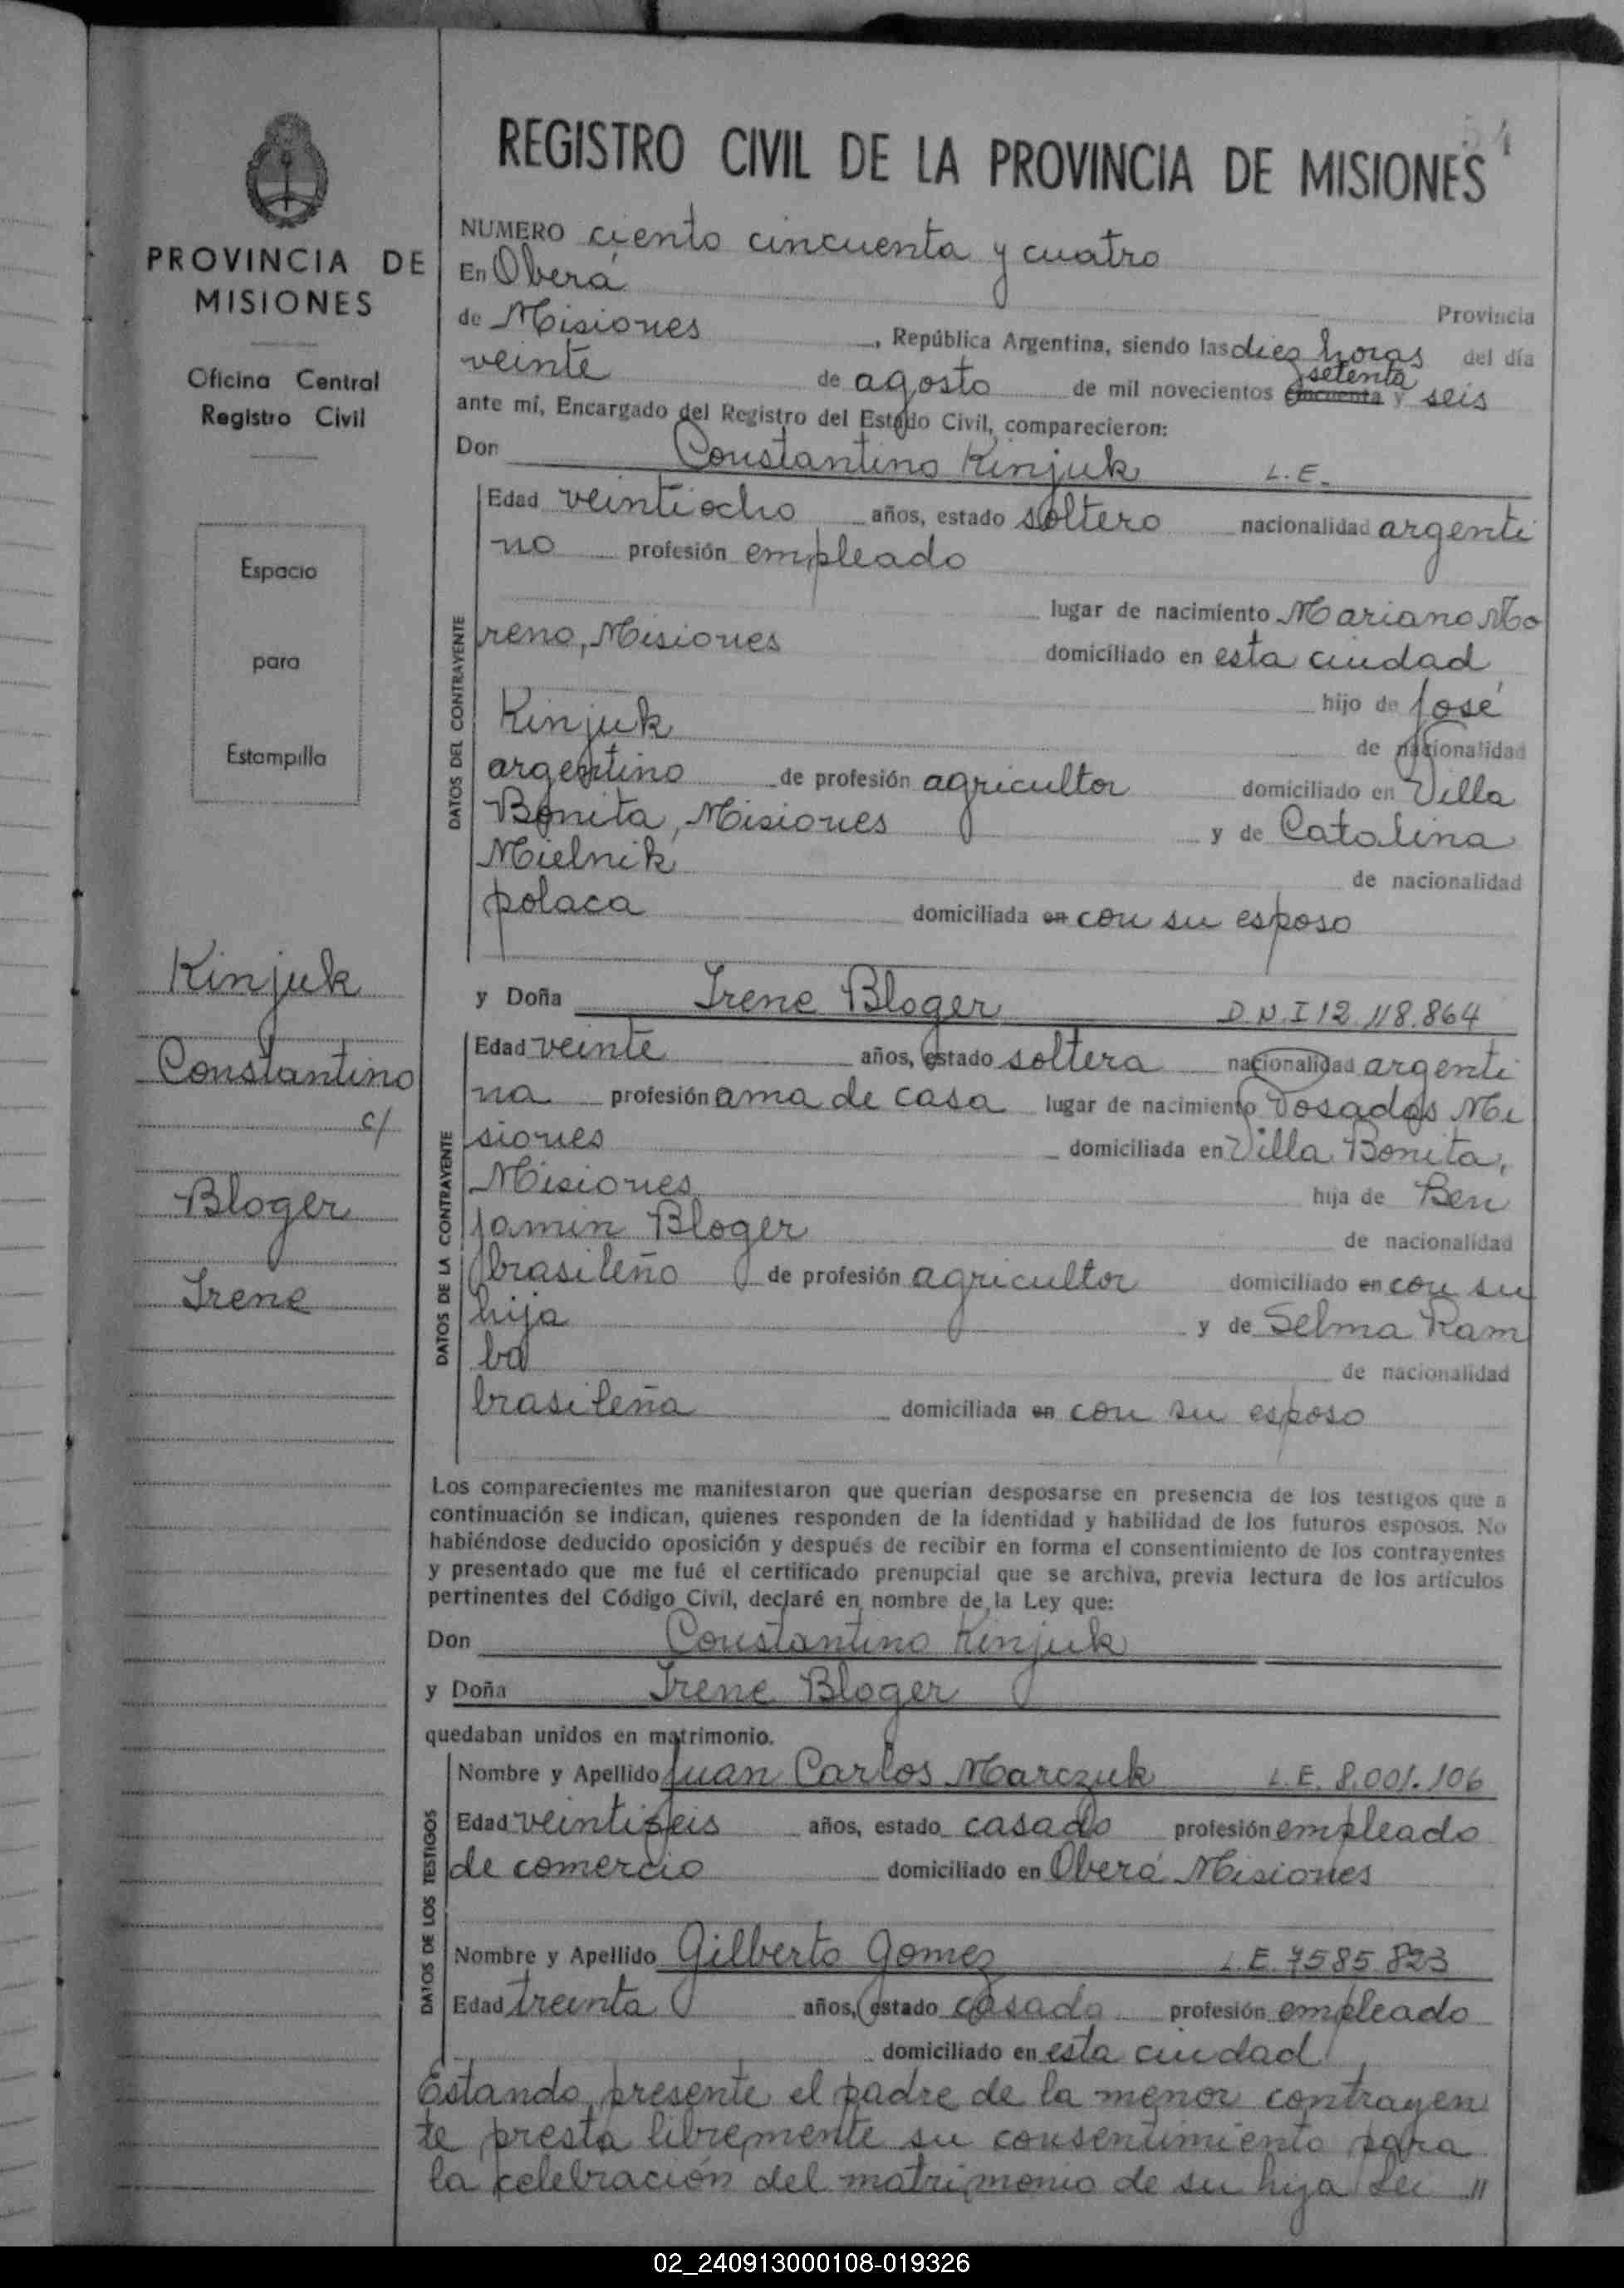 54
REGISTRO CIVIL DE LA PROVINCIA DE MISIONES
PROVINCIA DE
MISIONES
Oficina Central
Registro Civil
Espacio
para
Estampilla
Kinjuk
Constantino
c/
Bloger
Irene
NUMERO ciento cincuenta y cuatro
En Oberá Provincia
de Misiones, República Argentina, siendo las diez horas del día
veinte de agosto de mil novecientos cincuenta setenta y seis
ante mí, Encargado del Registro del Estado Civil, comparecieron:
Don Constantino Kinjuk L.E.
DATOS DEL CONTRAYENTE
Edad veintiocho años, estado soltero nacionalidad argenti
no profesión empleado
lugar de nacimiento Mariano Mo
reno, Misiones domiciliado en esta ciudad
hijo de José
Kinjuk de nacionalidad
argentino de profesión agricultor domiciliado en Villa
Bonita, Misiones y de Catalina
Mielnik de nacionalidad
polaca domiciliada en con su esposo
y Doña Irene Bloger D.N.I 12.118.864
DATOS DE LA CONTRAYENTE
Edad veinte años, estado soltera nacionalidad argenti
na profesión ama de casa lugar de nacimiento Posadas Mi
siones domiciliada en Villa Bonita,
Misiones hija de Ben
jamin Bloger de nacionalidad
brasileño de profesión agricultor domiciliado en con su
hija y de Selma Ram
ba de nacionalidad
brasileña domiciliada en con su esposo
Los comparecientes me manifestaron que querían desposarse en presencia de los testigos que a
continuación se indican, quienes responden de la identidad y habilidad de los futuros esposos. No
habiéndose deducido oposición y después de recibir en forma el consentimiento de los contrayentes
y presentado que me fué el certificado prenupcial que se archiva, previa lectura de los artículos
pertinentes del Código Civil, declaré en nombre de la Ley que:
Don Constantino Kinjuk
y Doña Irene Bloger
quedaban unidos en matrimonio.
DATOS DE LOS TESTIGOS
Nombre y Apellido Juan Carlos Marczuk L.E. 8.001.106
Edad veintiseis años, estado casado profesión empleado
de comercio domiciliado en Oberá Misiones
Nombre y Apellido Gilberto Gomez L.E. 7585.823
Edad treinta años, estado casado profesión empleado
domiciliado en esta ciudad
Estando presente el padre de la menor contrayen
te presta libremente su consentimiento para
la celebración del matrimonio de su hija Lei "
02_240913000108-019326